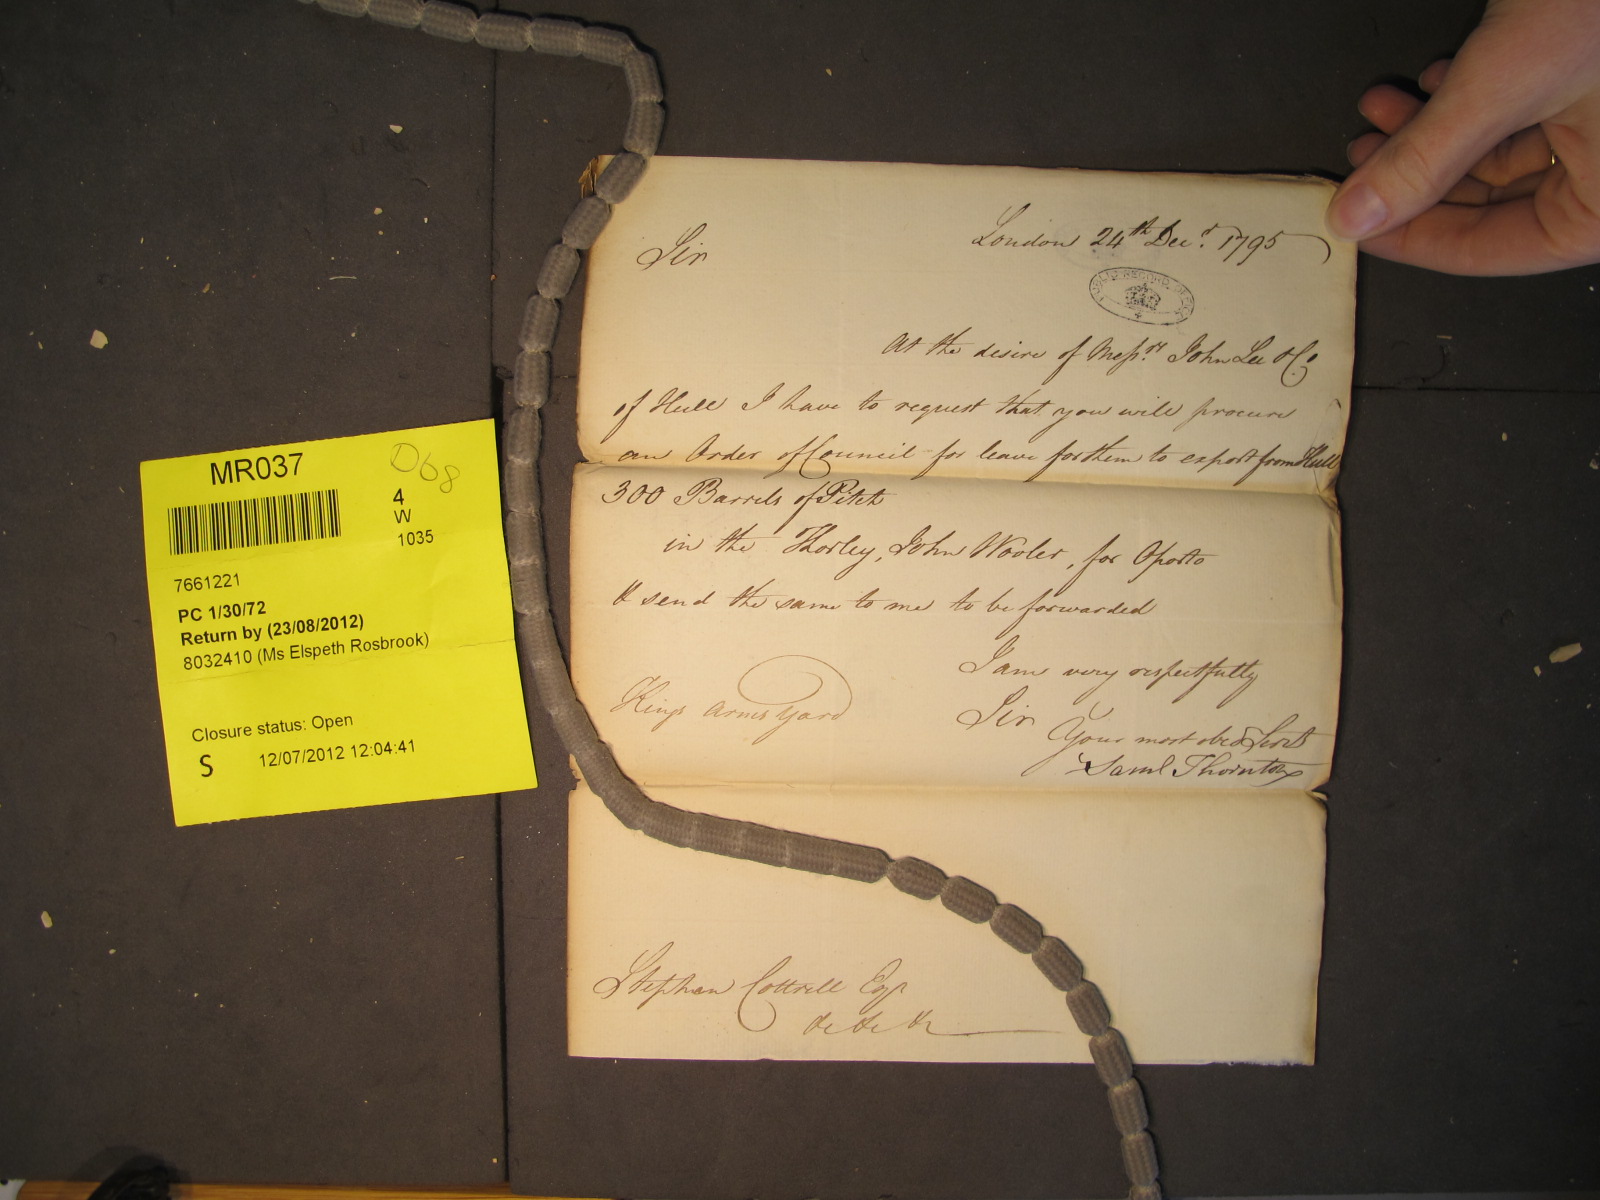 MR037
D68
4
W
1035
7661221
PC 1/30/72
Return by (23/08/2012)
8032410 (Ms Elspeth Rosbrook)
Closure status: Open
S 12/07/2012 12:04:41
London 24th Decr. 1795
Sir
PUBLIC RECORD OFFICE
At the desire of Messrs. John Lee & Co
of Hull I have to request that you will procure
an Order of Council for leave for them to export from Hull
300 Barrels of Pitch
in the Thorley, John Wooler, for Oporto
& send the same to me to be forwarded
I am very respectfully
Sir
Your most obed Servt
Kings Arms Yard
Saml Thornton
Stephen Cottrell Esqr
&c &c &c